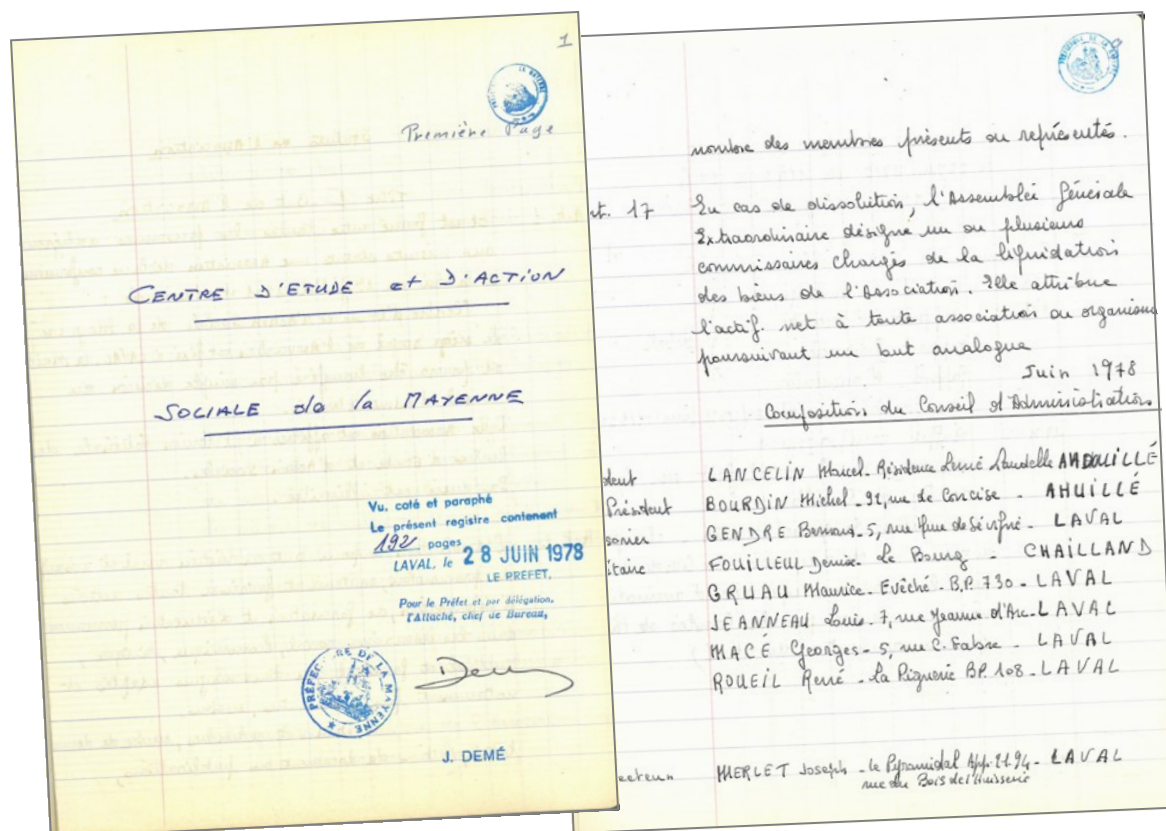 1
Première Page
CENTRE D'ETUDE et D'ACTION
SOCIALE de la MAYENNE
Vu, coté et paraphé
Le présent registre contenant
192 pages
LAVAL, le 28 JUIN 1978
LE PREFET,
Pour le Préfet et par délégation,
l'Attaché, chef de Bureau,
PRÉFECTURE DE LA MAYENNE
J. DEMÉ
nombre des membres présents ou représentés.
t. 17 En cas de dissolution, l'Assemblée Générale
Extraordinaire désigne un ou plusieurs
commissaires chargés de la liquidation
des biens de l'Association. Elle attribue
l'actif net à toute association ou organisme
poursuivant un but analogue
Juin 1978
Composition du Conseil d'Administration
dent LANCELIN Marcel - Résidence Landelle ANDOUILLÉ
Président BOURDIN Michel - 92, rue de Concise - AHUILLÉ
sorier GENDRE Bernard - 5, rue Mme de Sévigné - LAVAL
étaire FOUILLEUL Denise - Le Bourg - CHAILLAND
GRUAU Maurice - Evêché - B.P. 730 - LAVAL
JEANNEAU Louis - 7, rue Jeanne d'Arc - LAVAL
MACÉ Georges - 5, rue C. Fabre - LAVAL
ROUEIL René - la Pignerie BP. 108 - LAVAL
ecteur MERLET Joseph - le Pyramidal App. 2194 - LAVAL
rue du Bois de l'Huisserie